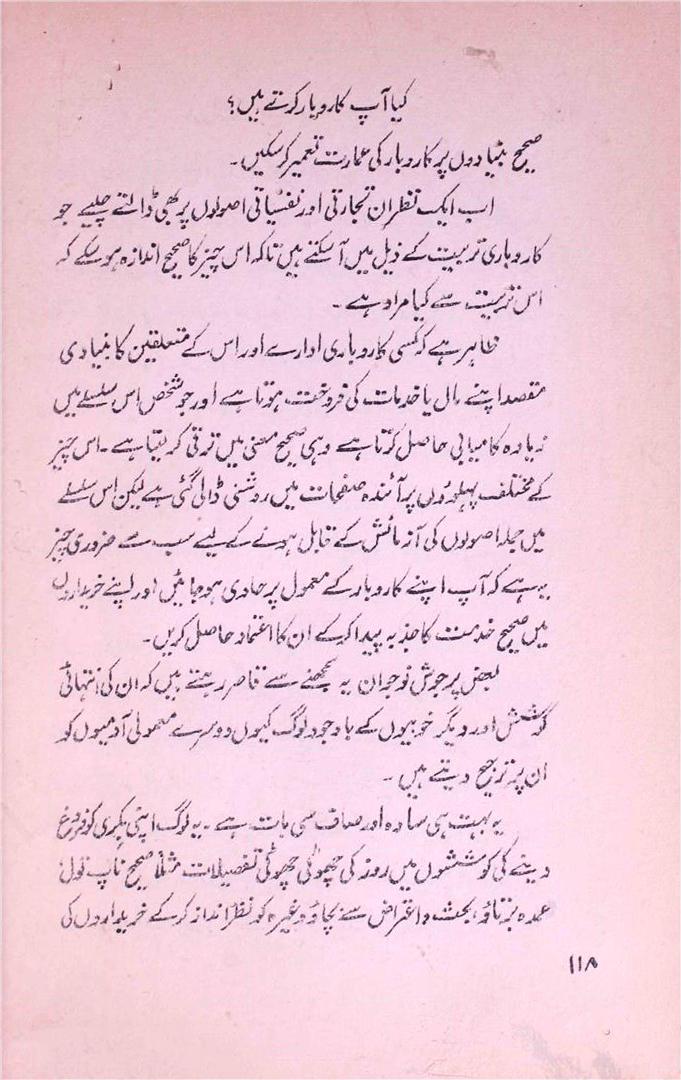 کیا آپ کاروبار کرتے ہیں؟
صحیح بنیادوں پر کاروبار کی عمارت تعمیر کر سکیں۔
اب ایک نظر ان تجارتی اور نفسیاتی اصولوں پر بھی ڈالتے چلیے جو
کاروباری تربیت کے ذیل میں آ سکتے ہیں تاکہ اس چیز کا صحیح اندازہ ہو سکے کہ
اس تربیت سے کیا مراد ہے۔
ظاہر ہے کہ کسی کاروباری ادارے اور اس کے متعلقین کا بنیادی
مقصد اپنے مال یا خدمات کی فروخت ہوتا ہے اور جو شخص اس سلسلے میں
زیادہ کامیابی حاصل کرتا ہے وہی صحیح معنی میں ترقی کر لیتا ہے۔ اس چیز
کے مختلف پہلوؤں پر آئندہ صفحات میں روشنی ڈالی گئی ہے لیکن اس سلسلے
میں جملہ اصولوں کی آزمائش کے قابل ہونے کے لیے سب سے ضروری چیز
یہ ہے کہ آپ اپنے کاروبار کے معمول پر حاوی ہو جائیں اور اپنے خریداروں
میں صحیح خدمت کا جذبہ پیدا کر کے ان کا اعتماد حاصل کریں۔
بعض پرجوش نوجوان یہ سمجھنے سے قاصر رہتے ہیں کہ ان کی انتہائی
کوشش اور دیگر خوبیوں کے باوجود لوگ کیوں دوسرے معمولی آدمیوں کو
ان پر ترجیح دیتے ہیں۔
یہ بہت ہی سادہ اور صاف سی بات ہے۔ یہ لوگ اپنی بکری کو فروغ
دینے کی کوششوں میں روز کی چھوٹی چھوٹی تفصیلات مثلاً صحیح ناپ تول
عمدہ برتاؤ، بحث و اعتراض سے بچاؤ وغیرہ کو نظر انداز کر کے خریداروں کی
۱۱۸